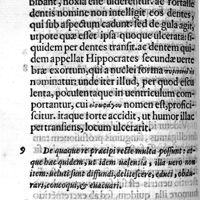 bibant, noxia esse uiderentur. ac fortasse
dentis nomine non intelligit eos dentes,
qui sub aspectum cadunt: sed de gula agit,
utpote quæ esset ipsa quoque ulceratis si-
quidem per dentes transit. ac dentem qui-
dem appellat Hippocrates secundæ uerte
bræ exortum, qui a nuclei forma
nominatur: unde iter illud, per quod escu
lenta, poculentaque in uentriculum com-
portantur, cui nomen est, profici-
scitur. itaque forte accidit, ut humor illac
per transiens, locum ulcerarit.
9 De quaque re præcipi reste multa possunt: at-
que hæc quidem, ut idem ualeant, illa uero non
item: ueluti sunt diffundi, delitescere, educi, obdu-
rari, concoqui, &amp; euacuari.